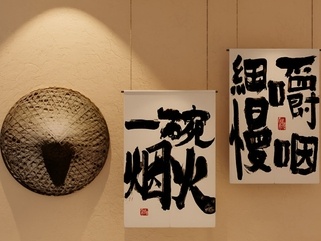 一碗
烟火
細嚼
慢咽